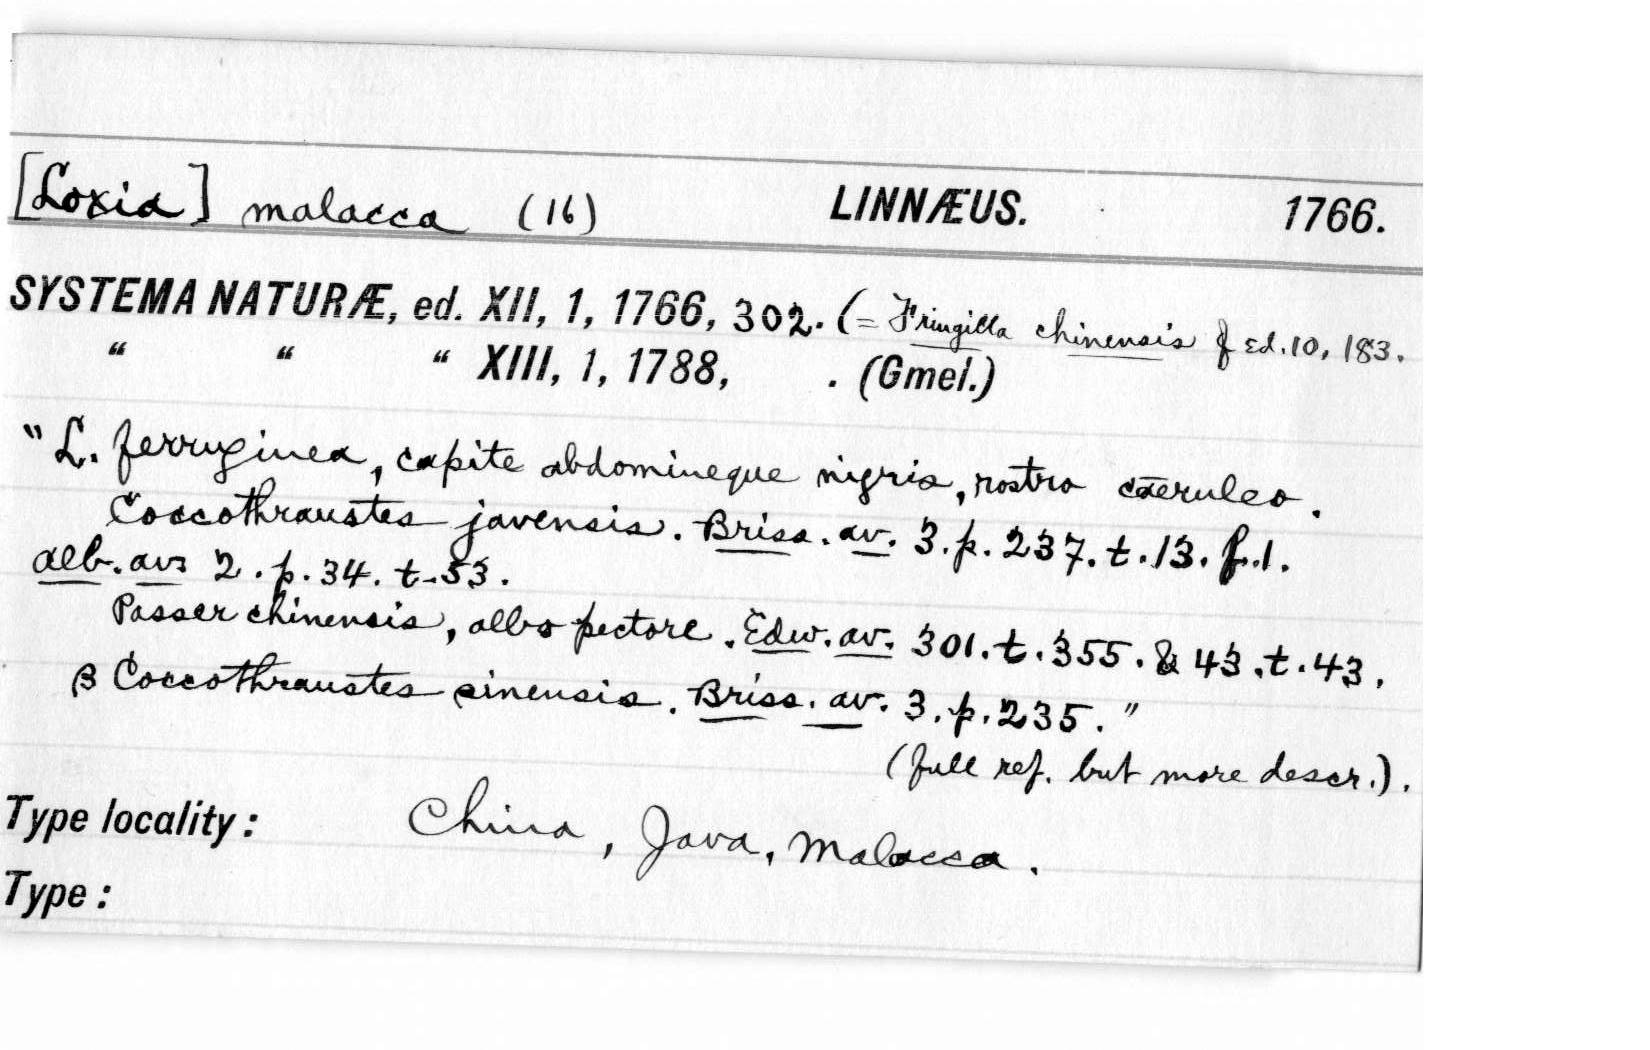 [Loxia] malacca (16) LINNÆUS. 1766.
SYSTEMA NATURÆ, ed. XII, 1, 1766, 302. (= Fringilla chinensis of Ed. 10, 183.
“ “ “ XIII, 1, 1788, . (Gmel.)
"L. ferruginea, capite abdomineque nigris, rostro caeruleo.
Coccothraustes javensis. Briss. av. 3. p. 237. t. 13. f. 1.
alb. avs 2. p. 34. t. 53.
Passer chinensis, albo pectore. Edw. av. 301. t. 355. & 43. t. 43.
β Coccothraustes sinensis. Briss. av. 3. p. 235."
(full ref. but more descr.).
Type locality: China, Java, Malacca.
Type: